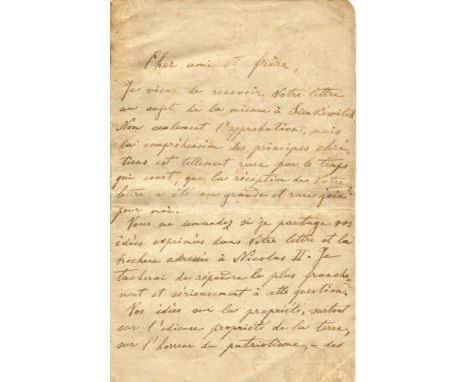 Cher ami et frère,
Je viens de recevoir Votre lettre
au sujet de la mienne à Sienkiewitch.
Non seulement l'approbation, mais
la compréhension des principes chré-
tiens est tellement rare par le temps
qui court, que la réception de Votre
lettre a été une grande et rare joie
pour moi.
Vous me demandez si je partage vos
idées exprimées dans Votre lettre et la
brochure adressée à Nicolas II. Je
tacherai de répondre le plus franche-
ment et sérieusement à cette question.
Vos idées sur la propriété, surtout
sur l'odieuse propriété de la terre,
sur l'horreur du patriotisme, – des